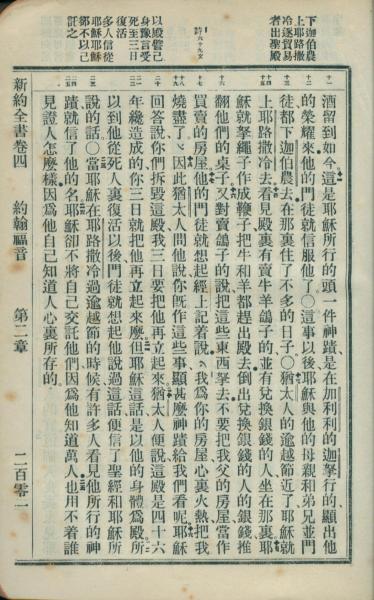 下迦伯農
上耶路撒
冷逐貿易
者出聖殿
詩六十九
以殿譬己
身豫言受
死至三日
復活
多人信從
耶穌耶穌
郤不以己
託之
酒留到如今這是耶穌所行的頭一件神蹟是在加利利的迦拏行的顯出他
的榮耀來他的門徒就信服他了〇這事以後耶穌與他的母親和弟兄並門
徒都下迦伯農去在那裏住了不多的日子〇猶太人的逾越節近了耶穌就
上耶路撒冷去看見殿裏有賣牛羊鴿子的並有兌換銀錢的人坐在那裏耶
穌就拏繩子作成鞭子把牛和羊都趕出殿去倒出兌換銀錢的人的銀錢推
翻他們的桌子又對賣鴿子的說把這些東西拏去不要把我父的房屋當作
買賣的房屋他的門徒就想起經上記着說我爲你的房屋心裏火熱把我
燒盡了因此猶太人問他說你旣作這些事顯甚麼神蹟給我們看呢耶穌
回答說你們拆毀這殿我三日要把他再立起來猶太人便說這殿是四十六
年纔造成的你三日就把他再立起來麼但耶穌這話是以他的身體爲殿所
以到他從死人裏復活以後門徒就想起他說過這話便信了聖經和耶穌所
說的話〇當耶穌在耶路撒冷過逾越節的時候有許多人看見他所行的神
蹟就信了他的名耶穌卻不將自己交託他們因爲他知道萬人也用不着誰
見證人怎麼樣因爲他自己知道人心裏所存的
新約全書卷四 約翰福音 第二章 二百零一